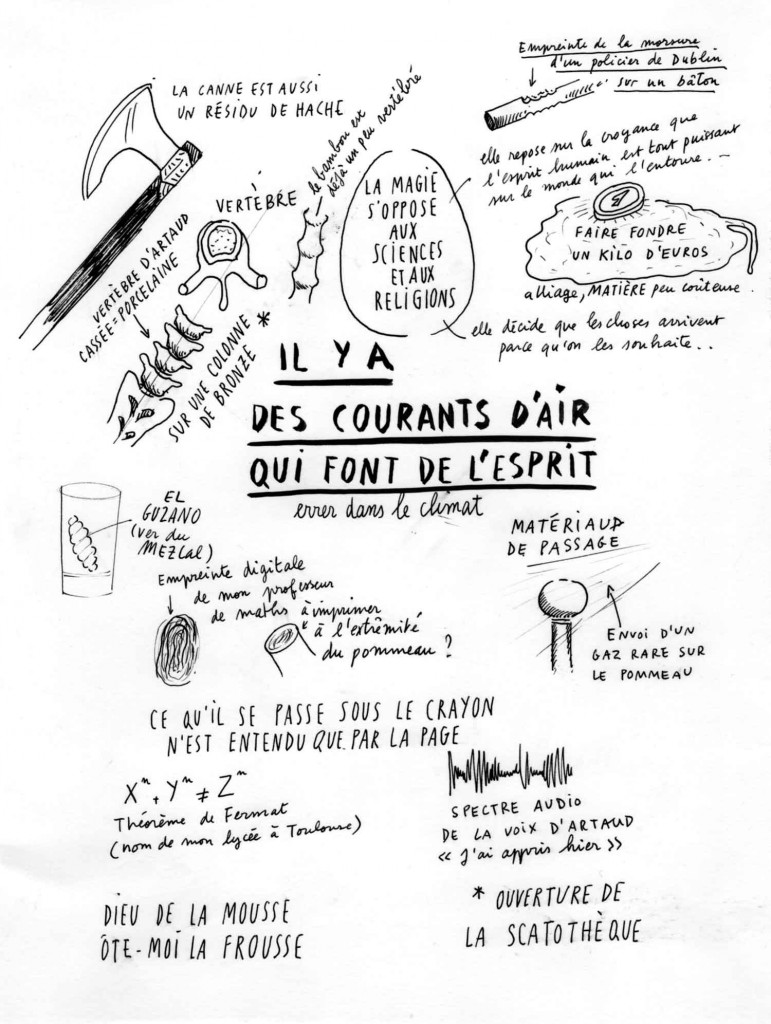 Empreinte de la morsure
d'un policier de Dublin
sur un bâton
LA CANNE EST AUSSI
UN RÉSIDU DE HACHE
le bambou est
déjà un peu vertébré
VERTÈBRE
LA MAGIE
S'OPPOSE
AUX
SCIENCES
ET AUX
RELIGIONS
elle repose sur la croyance que
l'esprit humain est tout puissant
sur le monde qui l'entoure. –
FAIRE FONDRE
UN KILO D'EUROS
alliage, MATIÈRE peu coûteuse
elle décide que les choses arrivent
parce qu'on les souhaite..
VERTÈBRE D'ARTAUD
CASSÉE = PORCELAINE
SUR UNE COLONNE *
DE BRONZE
IL Y A
DES COURANTS D'AIR
QUI FONT DE L'ESPRIT
errer dans le climat
EL
GUZANO
(ver du
MEZCAL)
Empreinte digitale
de mon professeur
de maths à imprimer
à l'extrêmité
du pommeau ?
MATÉRIAUX
DE PASSAGE
ENVOI D'UN
GAZ RARE SUR
LE POMMEAU
CE QU'IL SE PASSE SOUS LE CRAYON
N'EST ENTENDU QUE PAR LA PAGE
Xⁿ + Yⁿ ≠ Zⁿ
Théorème de Fermat
(nom de mon lycée à Toulouse)
SPECTRE AUDIO
DE LA VOIX D'ARTAUD
« J'ai appris hier »
DIEU DE LA MOUSSE
ÔTE-MOI LA FROUSSE
* OUVERTURE DE
LA SCATOTHÈQUE